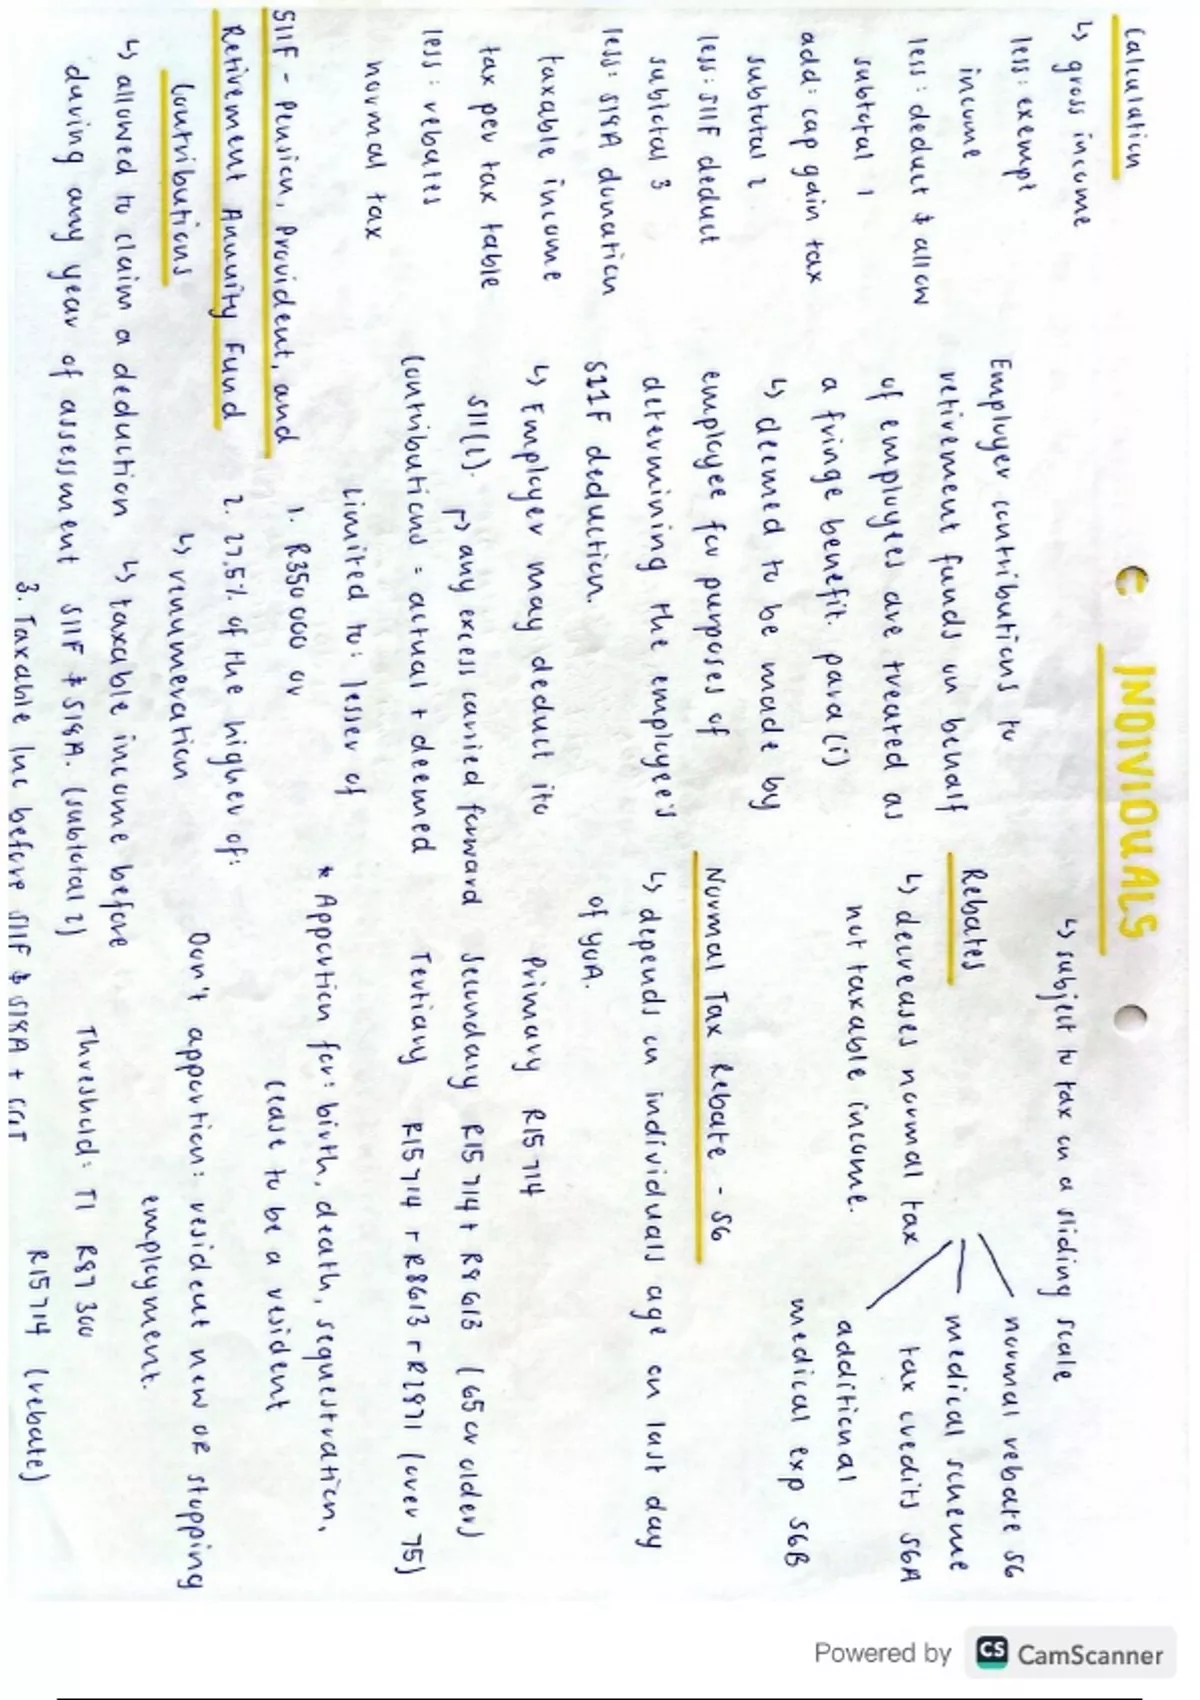 INDIVIDUALS
↳ subject to tax on a sliding scale
Calculation
↳ gross income
less: exempt
income
less: deduct & allow
subtotal 1
add: cap gain tax
subtotal 2
less: S11F deduct
subtotal 3
less: S18A donation
taxable income
tax per tax table
less: rebates
normal tax
S11F - Pension, Provident, and
Retirement Annuity Fund
Contributions
↳ allowed to claim a deduction
during any year of assessment
Employer contributions to
retirement funds on behalf
of employees are treated as
a fringe benefit. para (i)
↳ deemed to be made by
employee for purposes of
determining the employee's
S11F deduction.
↳ Employer may deduct ito
S11(l).
↱ any excess carried forward
Contributions = actual + deemed
Limited to: lesser of
1. R350 000 or
2. 27,5% of the higher of:
↳ renumeration
↳ taxable income before
S11F & S18A. (subtotal 2)
3. Taxable Inc before S11F & S18A + CGT
Rebates
↳ decreases normal tax
not taxable income.
normal rebate S6
medical scheme
tax credits S6A
additional
medical exp S6B
Normal Tax Rebate - S6
↳ depends on individuals age on last day
of yoA.
Primary R15 714
Secondary R15 714 + R8 613 (65 or older)
Tertiary R15 714 + R8613 + R2871 (over 75)
* Apportion for: birth, death, sequestration,
cease to be a resident
Don't apportion: resident new or stopping
employment.
Threshold: T1 R87 300
R15 714 (rebate)
Powered by CS CamScanner